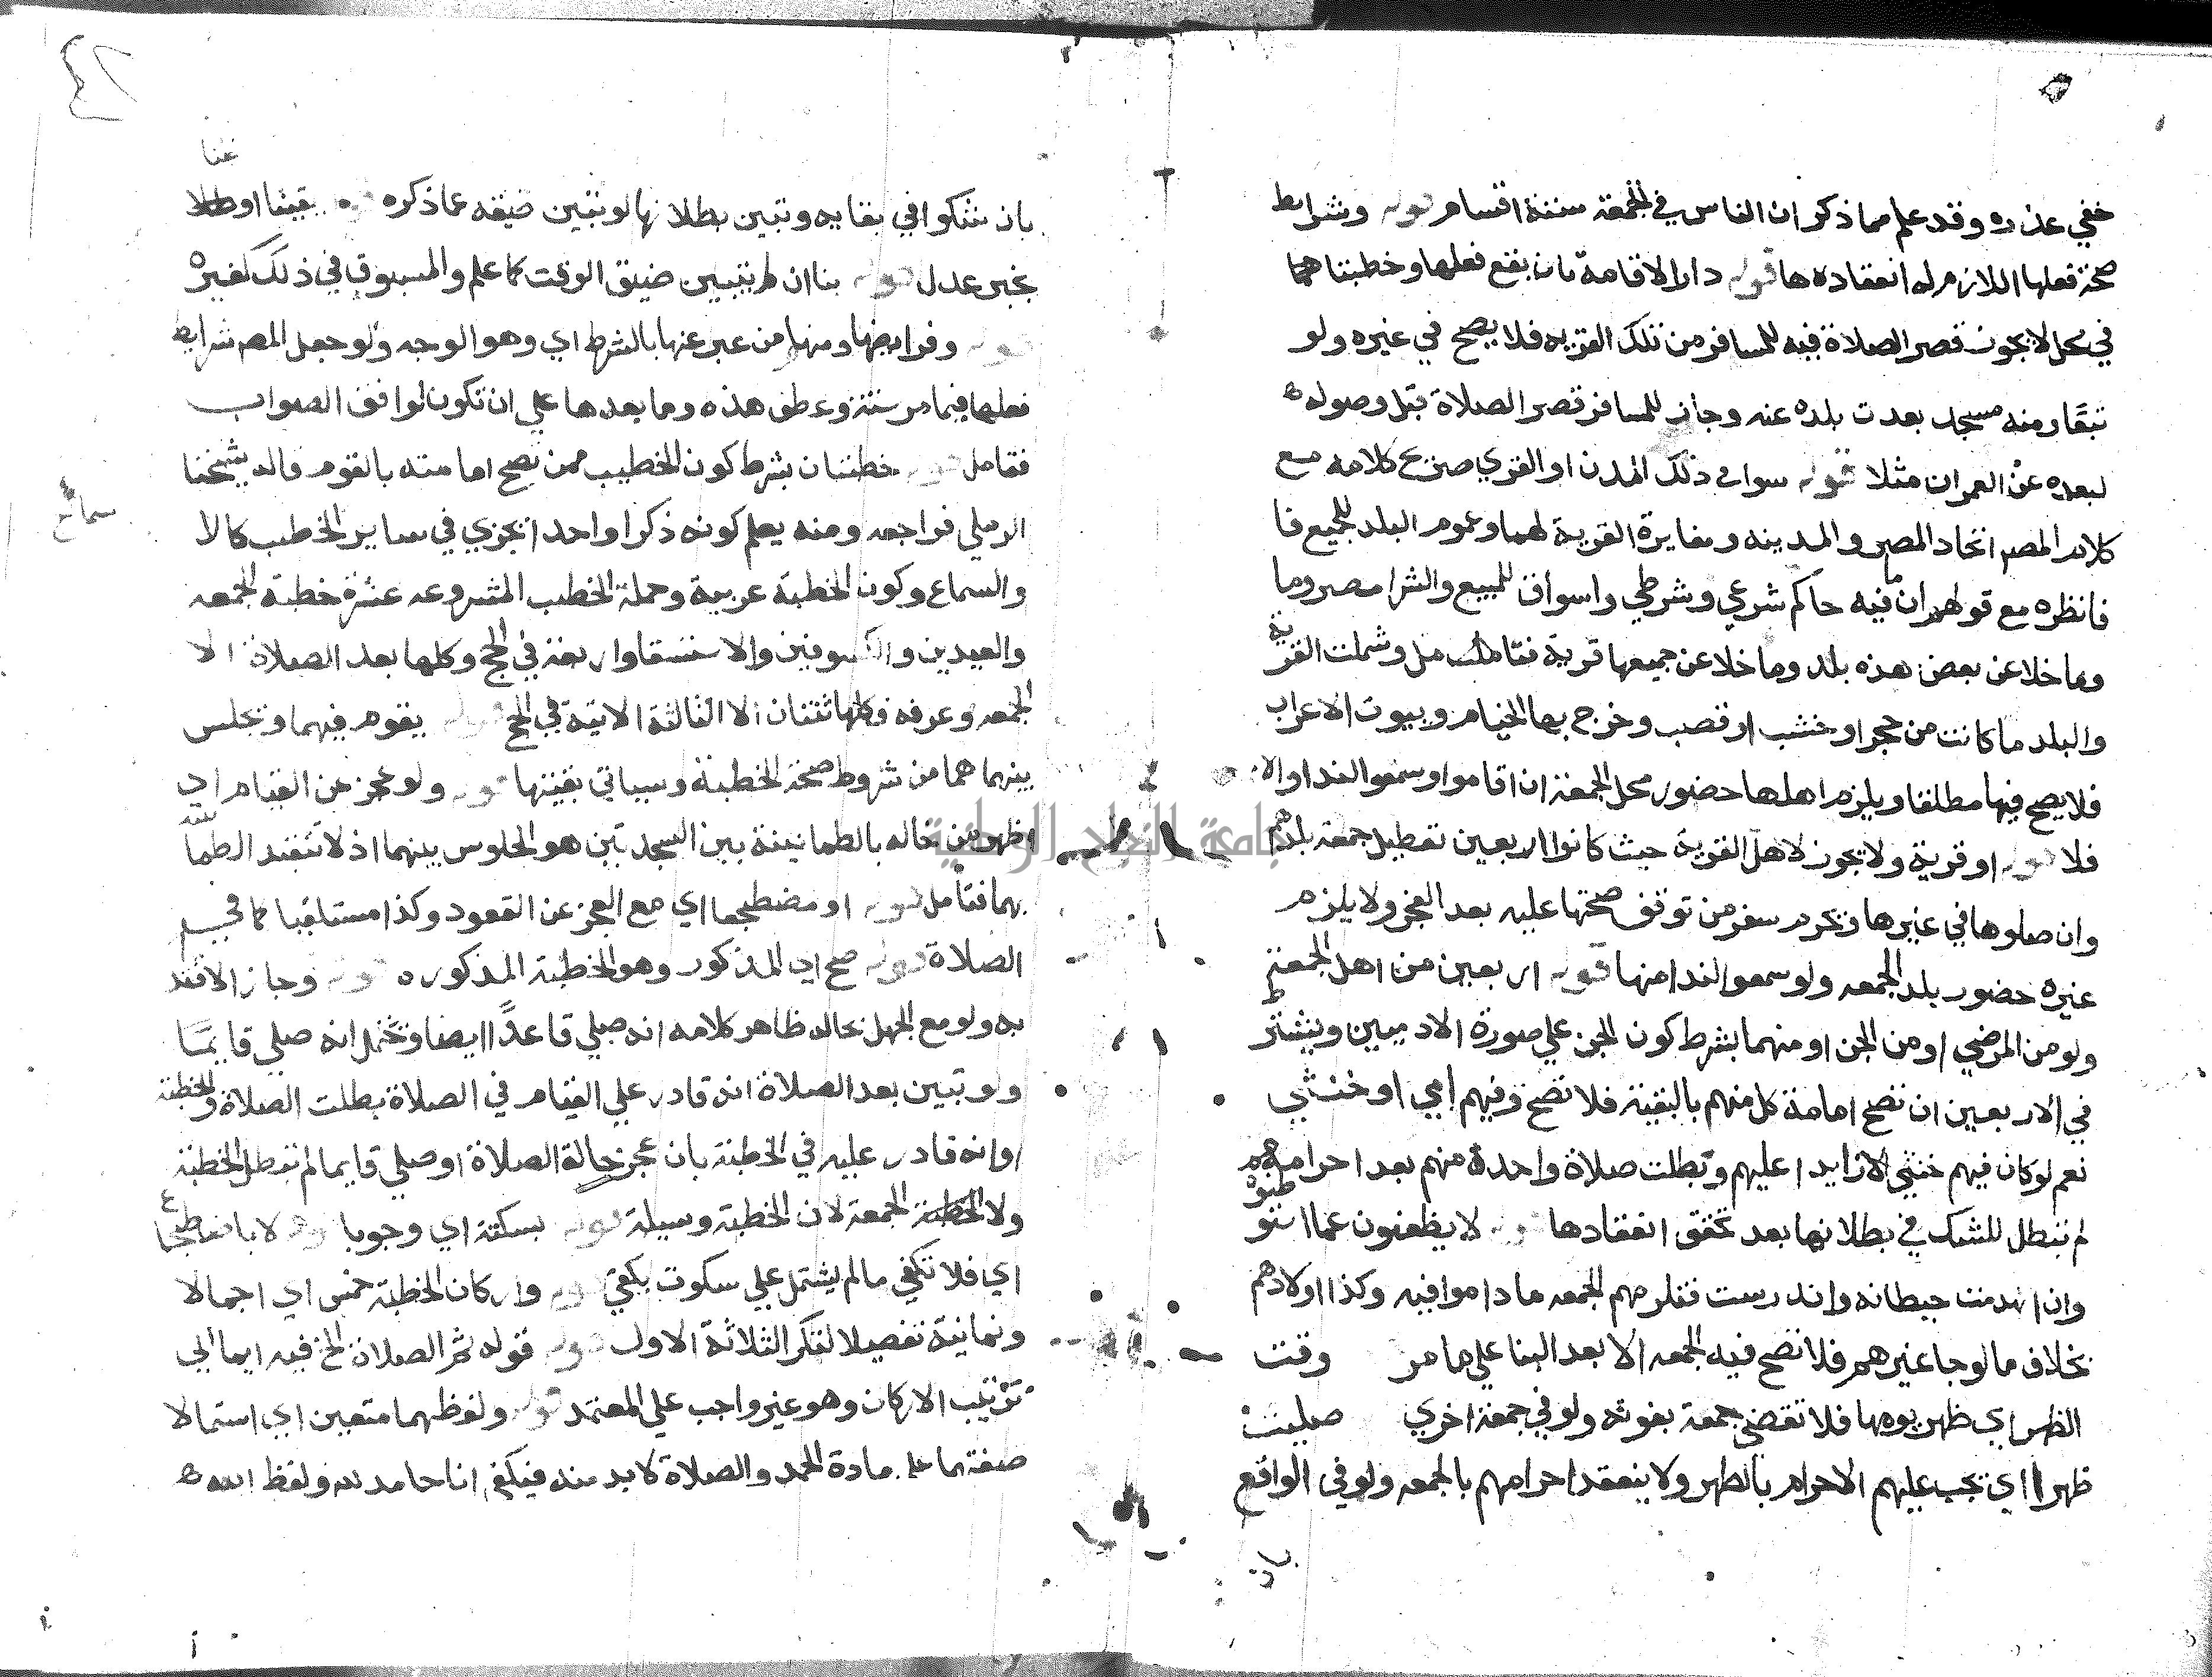 خفي عذره وقد علم مما ذكر ان الناس في الجمعة ستة اقسام قوله وشرايط
صحة فعلها اللازم له انعقادها قوله دار الاقامة بان يقع فعلها وخطبتاها
في محل لا يجوز قصر الصلاة فيه للمسافر من تلك القرية فلا يصح في غيره ولو
تبقا منه مسجد بعدت بلده عنه وجاز للمسافر قصر الصلاة قبل وصوله
لبعده عن العمران مثلا قوله سوا في ذلك المدن او القري صريح كلامه مع
كلام المصم اتحاد المصر والمدينه ومغايرة القرية لهما وعموم البلد للجميع فا
فانظره مع قولهم ان ما فيه حاكم شرعي وشرطي واسواق للبيع والشرا مصر وما
وما خلا عن بعض هذه بلد وما خلا عن جميعها قرية فتامل وشملت القرية
والبلد ما كانت من حجر او خشب او قصب وخرج بها الخيام وبيوت الاعراب
فلا يصح فيها مطلقا ويلزم اهلها حضور محل الجمعة ان اقاموا وسمعوا الندا والا
فلا قوله او قرية ولا يجوز لاهل القرية حيث كانوا اربعين تعطيل جمعة بلدهم
وان صلوها في غيرها ويحرم سفر من توقف صحتها عليه بعد الفجر ولا يلزم
غيره حضور بلد الجمعه ولو سمعوا الندا منها قوله اربعين من اهل الجمعة
ولو من المرضي او من الجن او منهما بشرط كون الجن علي صورة الادميين ويشترط
في الاربعين ان تصح امامة كل منهم بالبقية فلا تصح وفيهم امي او خنثي
نعم لو كان فيهم خنثي زايدا عليهم وبطلت صلاة واحدة منهم بعد احرامهم
لم تبطل للشك في بطلانها بعد تحقق انعقادها قوله لا يظعنون عما استوطنوه
وان انهدمت حيطانه واندرست فتلزمهم الجمعه ما داموا فيه وكذا اولادهم
بخلاف ما لو جا غيرهم فلا تصح فيه الجمعه الا بعد البنا علي ما مر وقت
الظهر اي ظهر يومها فلا تقضي جمعة بفوته ولو في جمعة اخري صليت
ظهرا اي يجب عليهم الاحرام بالظهر ولا ينعقد احرامهم بالجمعه ولو في الواقع
بان
بان شكوا في بقايه وتبين بطلانها لو تبين ضيقه عما ذكره قوله يقينا او ظنا
بخبر عدل قوله بنا ان لم يتبين ضيق الوقت كما علم والمسبوق في ذلك كغيره
قوله وفرايضها ومنهم من عبر عنها بالشرط اي وهو الوجه ولو جعل المصم شرايط
فعلها فيما مر ستة وعطف هذه وما بعدها علي ان تكون لوافق الصواب
فتامل قوله خطبتان بشرط كون الخطيب ممن تصح امامته بالقوم قاله شيخنا
الرملي فراجعه ومنه يعلم كونه ذكرا واحدا نجزي في ساير الخطب كالا
سماع
والسماع وكون الخطبة عربية وجملة الخطب المشروعه عشرة خطبة الجمعه
والعيدين والكسوفين والاستسقا واربعة في الحج وكلها بعد الصلاة الا
الجمعه وعرفه وكلها ثنتان الا الثالثة الاتية في الحج قوله يقوم فيهما ويجلس
بينهما هما من شروط صحة الخطبة وسياتي بقيتها قوله ولو عجز عن القيام اي
اظهر من قاله بالطمانينة بين السجدتين هو الجلوس بينهما اذ لا تتقيد الطما
بهما فتامل قوله او مضطجعا اي مع العجز عن القعود وكذا مستلقيا كما في
الصلاة قوله صح اي المذكور وهو الخطبة المذكوره قوله وجاز الاقتدا
به ولو مع الجهل بحاله ظاهر كلامه انه صلي قاعدا ايضا ويحتمل انه صلي قايما
ولو تبين بعد الصلاة انه قادر علي القيام في الصلاة بطلت الصلاة والخطبة
او انه قادر عليه في الخطبة بان عجز حالة الصلاة او صلي قايما لم تبطل الخطبة
ولا الجمعة لان الخطبة وسيلة قوله بسكتة اي وجوبا قوله لا باضطجاع
اي فلا تكفي ما لم يشتمل علي سكوت يكفي قوله واركان الخطبة خمس اي اجمالا
وثمانية تفصيلا لتكرر الثلاثة الاول قوله قوله ثم الصلاة الخ فيه ايما الي
ترتيب الاركان وهو غير واجب علي المعتمد قوله ولفظهما متعين اي اشتمالا
صفتهما علي مادة الحمد والصلاة لا بد منه فيكفي انا حامد لله ولفظ الله